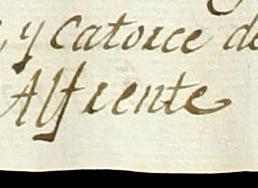 , y catorce de
Alfrente